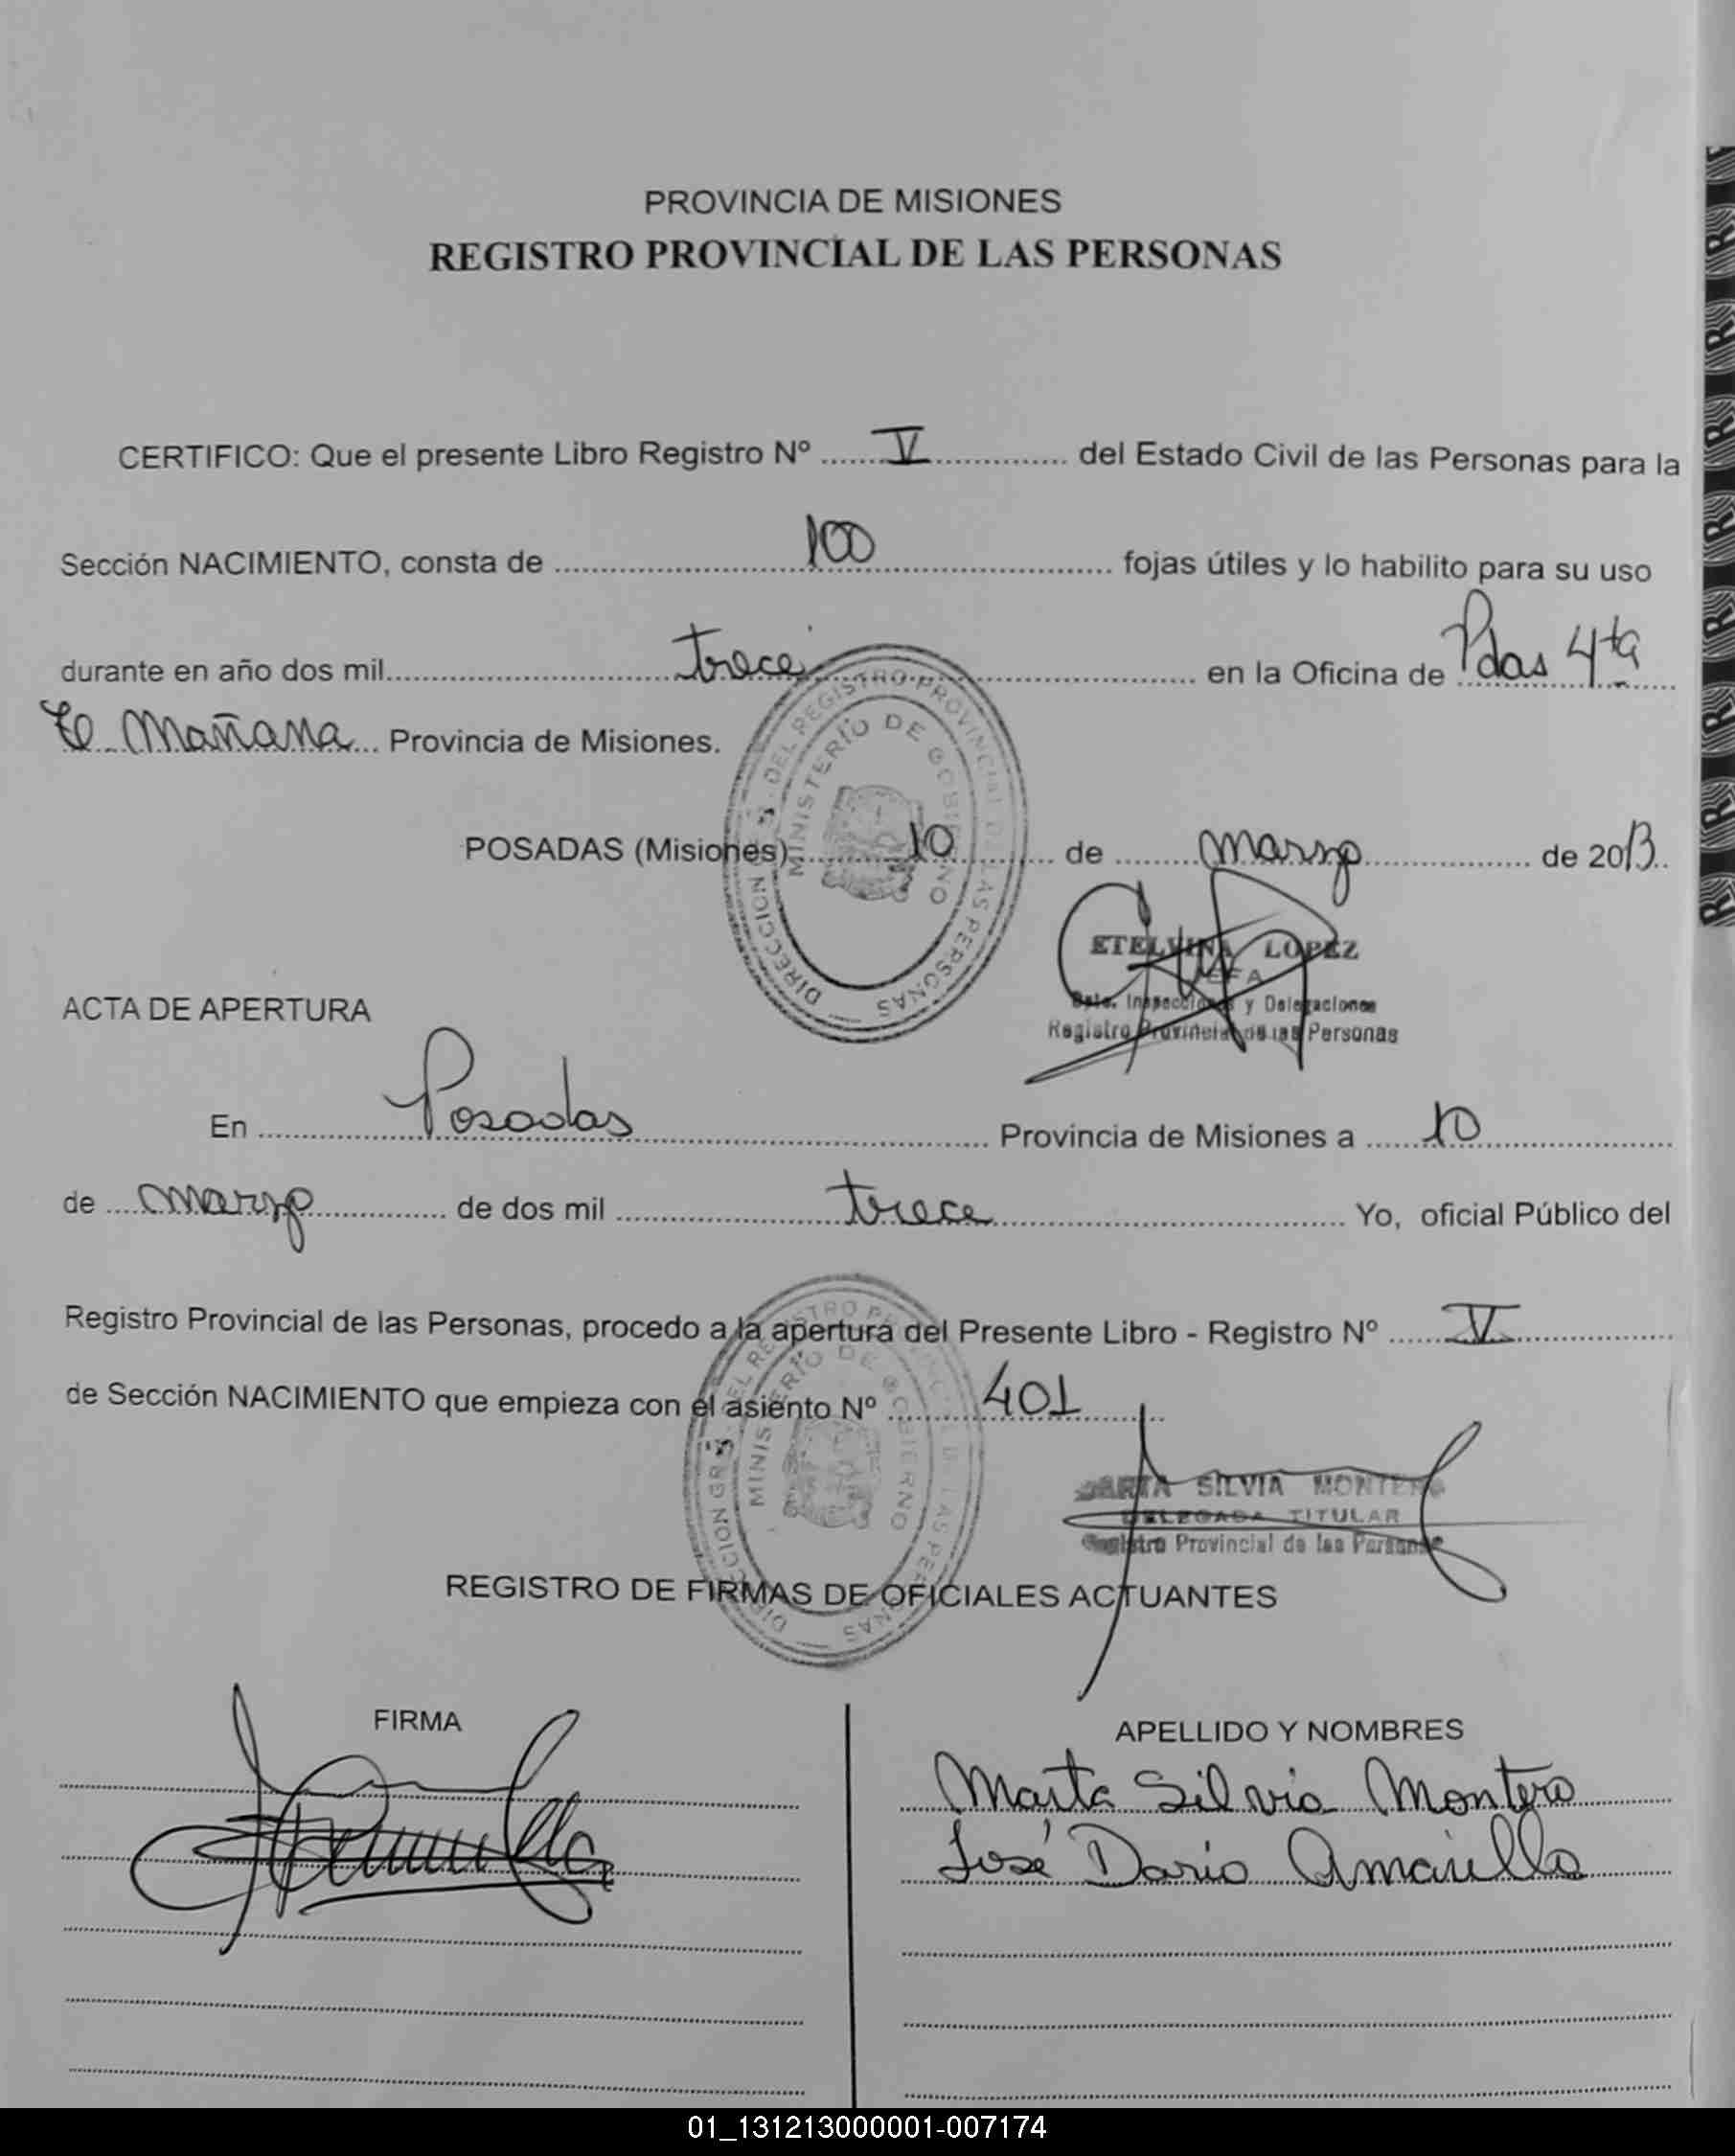 PROVINCIA DE MISIONES
REGISTRO PROVINCIAL DE LAS PERSONAS
CERTIFICO: Que el presente Libro Registro Nº V del Estado Civil de las Personas para la
Sección NACIMIENTO, consta de 100 fojas útiles y lo habilito para su uso
durante en año dos mil trece en la Oficina de Pdas 4ta
Mañana Provincia de Misiones.
DIRECCION GRAL. DEL REGISTRO PROVINCIAL DE LAS PERSONAS
MINISTERIO DE GOBIERNO
POSADAS (Misiones) 10 de marzo de 2013
ETELVINA LOPEZ
JEFA
Dpto. Inspecciones y Delegaciones
Registro Provincial de las Personas
ACTA DE APERTURA
En Posadas Provincia de Misiones a 10
de marzo de dos mil trece Yo, oficial Público del
Registro Provincial de las Personas, procedo a la apertura del Presente Libro - Registro Nº V
de Sección NACIMIENTO que empieza con el asiento Nº 401
DIRECCION GRAL. DEL REGISTRO PROVINCIAL DE LAS PERSONAS
MINISTERIO DE GOBIERNO
MARTA SILVIA MONTERO
DELEGADA TITULAR
Registro Provincial de las Personas
REGISTRO DE FIRMAS DE OFICIALES ACTUANTES
FIRMA
APELLIDO Y NOMBRES
Marta Silvia Montero
José Dario Amarilla
01_131213000001-007174